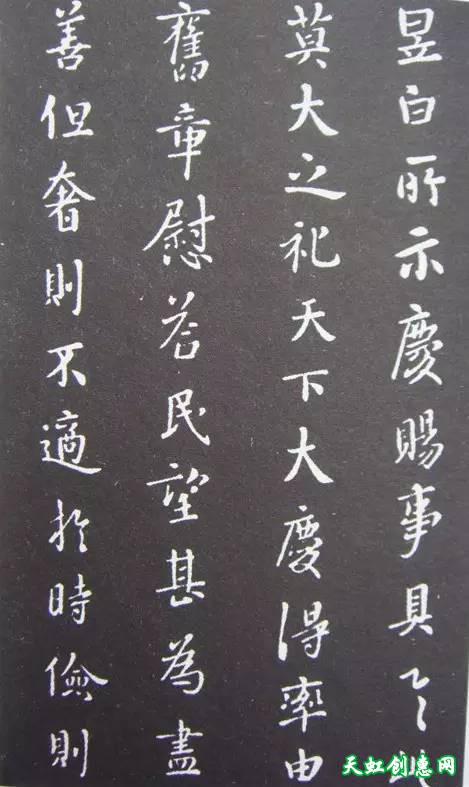 昱白所示慶賜事具之此
莫大之祀天下大慶得率由
舊章慰荅民望甚為盡
善但奢則不適於時儉則
天虹创意网